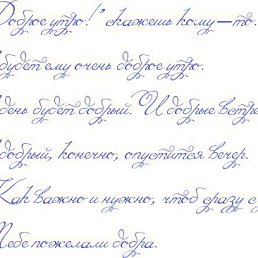 Доброе утро!" скажешь кому-то.
будет ему очень доброе утро.
день будет добрый. И добрые встре
добрый, конечно, опустится вечер.
Как важно и нужно, чтоб сразу с
Тебе пожелали добра.